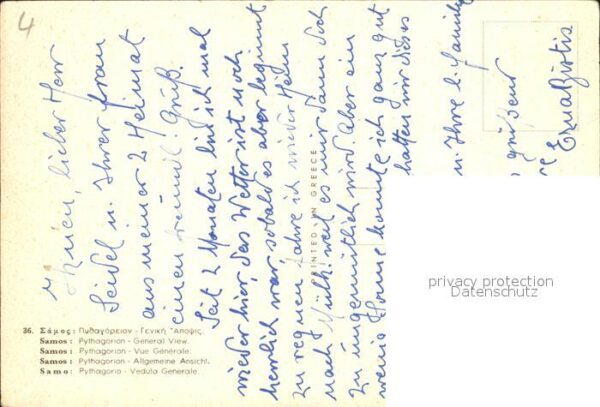 4
Ihnen, lieber Herr
Seidel u. Ihrer Frau
aus meiner 2 Heimat
einen freundl. Gruß.
Seit 2 Monaten bin ich mal
wieder hier, das Wetter ist noch
herrlich war, sobald es aber beginnt
zu regnen fahre ich wieder heim
nach Mülh. weil es mir dann doch
zu ungemütlich wird. Aber ein
wenig Sonne konnte ich ganz gut
hatten wir dieses
u. Ihre l. Familie
grüßend
Erna
PRINTED IN GREECE
36. Σάμος: Πυθαγόρειον - Γενική Ἄποψις.
Samos: Pythagorion - General View.
Samos: Pythagorion - Vue Générale.
Samos: Pythagorion - Allgemeine Ansicht.
Samo: Pythagoria - Veduta Generale.
privacy protection
Datenschutz